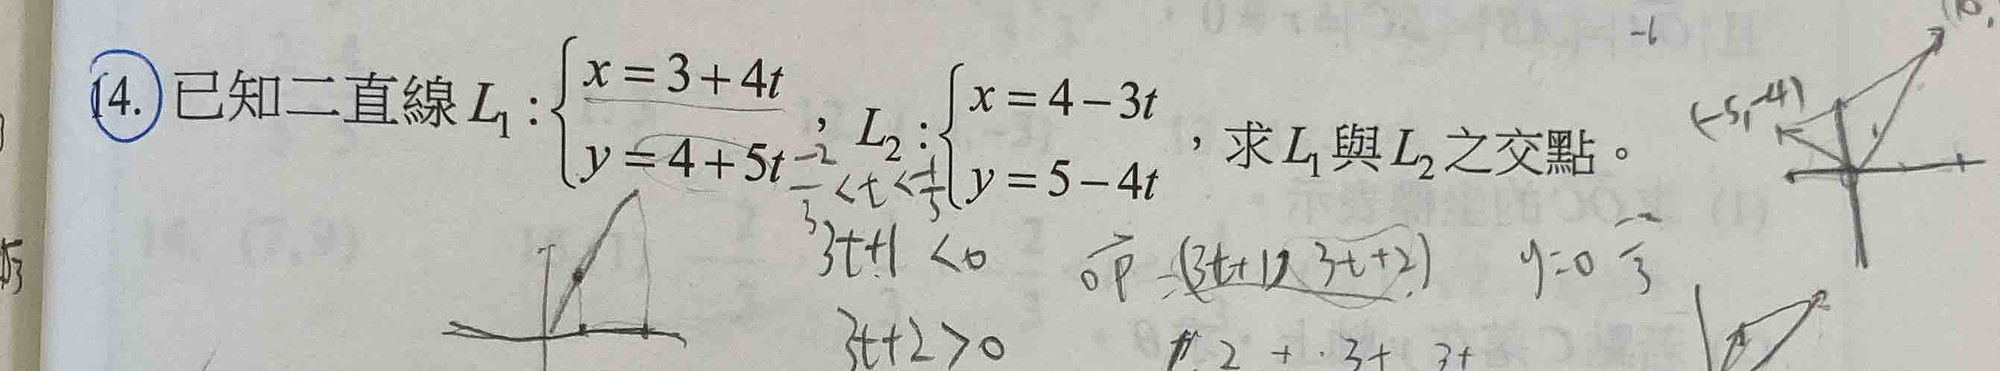 14. 已知二直線 L₁ : { x = 3 + 4t , y = 4 + 5t ， L₂ : { x = 4 − 3t , y = 5 − 4t ，求 L₁ 與 L₂ 之交點。
-6
(-5,-4)
-2/3 < t < -1/3
3t+1 < 0
OP = (3t+1, 3t+2)
y=0 -2/3
3t+2 > 0